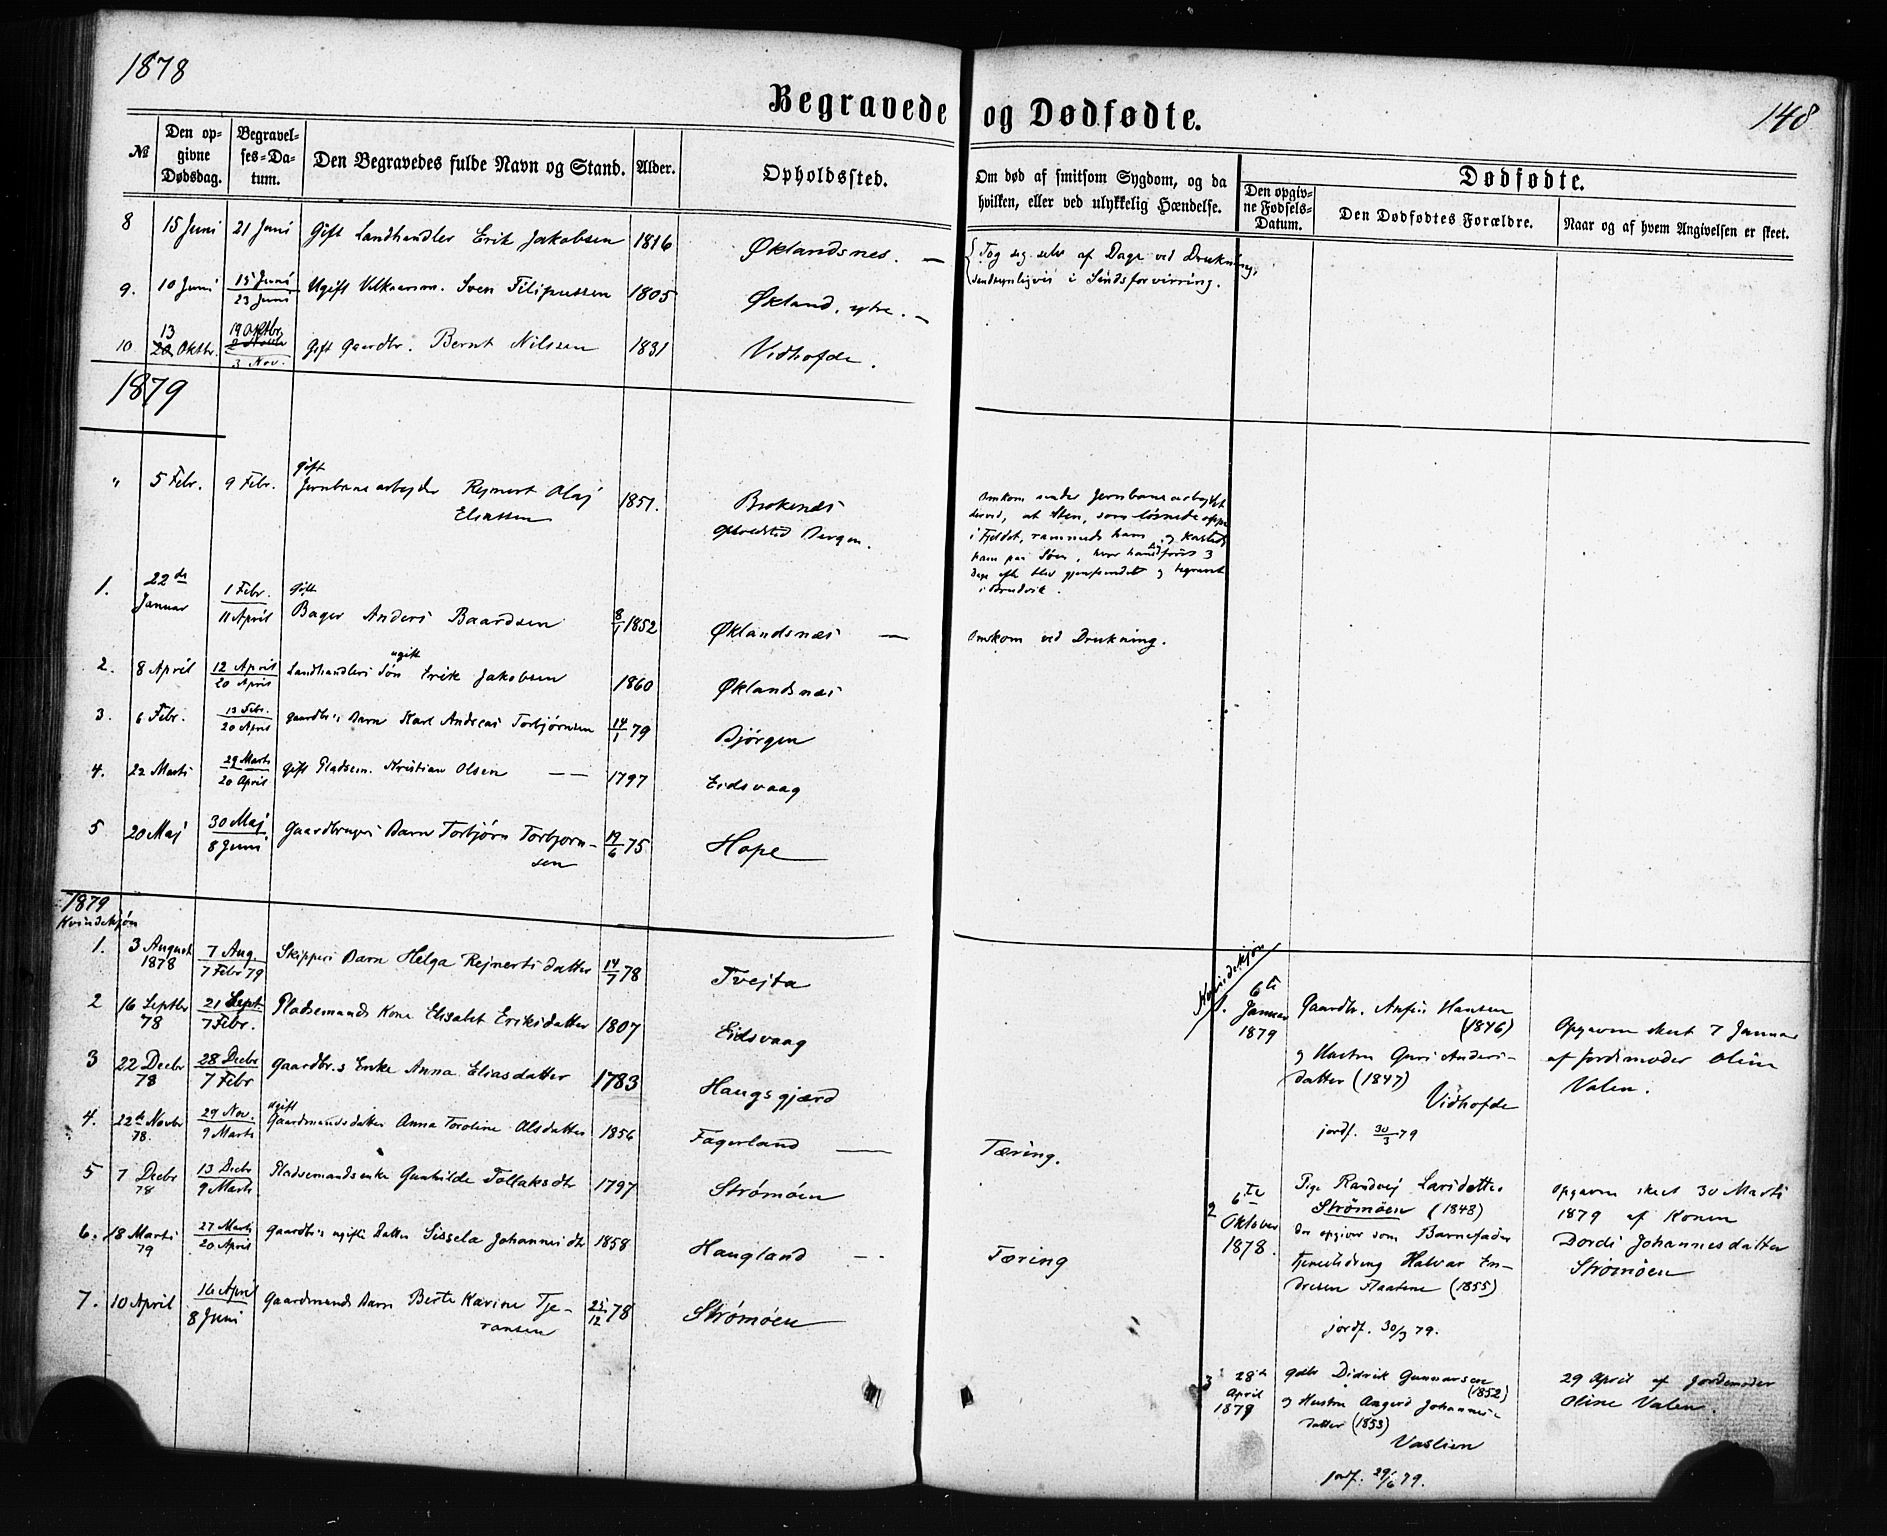 1878
148
Begravede og Dødfødte.
№
Den opgivne Dødsdag.
Begravelses-Datum.
Den Begravedes fulde Navn og Stand.
Alder.
Opholdssted.
Om død af smitsom Sygdom, og da
hvilken, eller ved ulykkelig Hændelse.
Dødfødte.
Den opgivne Fødsels-Datum.
Den Dødfødtes Forældre.
Naar og af hvem Angivelsen er skeet.
8 15 Juni 21 Juni Gift Landhandler Erik Jakobsen 1816 Øklandsnes. —
Tog sig selv af Dage ved Drukning,
sandsynligvis i Sindsforvirring.
9. 10 Juni 15 Juni / 23 Juni Ugift Sven Filipussen 1805 Økland, ytre. —
10 13 Oktbr. 19 Oktbr. / 3 Nov. Gift Gaardbr. Bernt Nilssen 1831 Vidhofde.
1879
" 5 Febr. 9 Febr. Gift
Jernbanearbejder Rejnert Olaj
Eliassen 1851. Brokenes
Bergen.
Omkom under Jernbanearbejdet
derved, at Sten, som løsnede oppe
i Fjeldet, rammede ham og kastede
ham paa Søen, hvor han først 3
Dage efter blev gjenfundet og begravet
i Bruvik.
1. 22de Januar 1 Febr. / 11 April Gift
Bager Anders Baardsen 8/1 1852 Øklandsnæs — Omkom ved Drukning.
2. 8 April 12 April / 20 April Landhandlers Søn ugift Erik Jakobsen 1860 Øklandsnæs
3. 6 Febr. 13 Febr. / 20 April Gaardbr.s Barn Karl Andreas Torbjørnsen 14/1 79 Bjørgen
4. 22 Marts 29 Marts / 20 April Gift Pladsem. Kristian Olsen — — 1797 Eidsvaag
5 20 Maj 30 Maj / 8 Juni Gaardbrugers Barn Torbjørn Torbjorn-
sen 19/6 75 Hope
1879
Kvindekjøn
1. 3 August 1878 7 Aug. / 7 Febr 79 Skippers Barn Helga Rejnertsdatter 14/7 78 Tvejta
2 16 Septbr 78 21 Sept / 7 Febr. Pladsemands Kone Elisabet Eriksdatter 1807 Eidsvaag
3 22 Decbr 78 28 Decbr / 7 Febr Gaardbr.s Enke Anna Eliasdatter 1783 Haugsgjærd
4. 22de Novbr 78. 29 Nov. / 9 Marts ugift
Gaardmandsdatter Anna Toroline Olsdatter 1856 Fagerland — Tæring.
5 7 Decbr 78 13 Decbr / 9 Marts Pladsemandsenke Gunhilde Tollaksdtr 1797 Strømøen
6. 18 Marts 79 27 Marts / 20 April Gaardbr.s ugifte Datter Sissela Johannesdtr 1858 Haugland - - Tæring
7. 10 April 16 April / 8 Juni Gaardmands Barn Berte Karine Tje-
ransen 25/12 78 Strømøen
Kvindekjøn
1. 6te Januar 1879
Gaardbr. Anfin Hansen
(1846)
og Hustru Guri Anders-
datter (1847)
Vidhofde
jordf. 30/3 79
Opgaven skeet 7 Januar
af Jordemoder Oline
Valen.
2 6te Oktober 1878.
Pige Randvej Larsdatter
Strømøen (1848)
der opgiver som Barnefader
Halvar En-
dresen Flaatene (1855)
jordf. 30/3 79.
Opgaven skeet 30 Marts
1879 af Konen
Dordi Johannesdatter
Strømøen
3 28de April 1879
Gdbr Didrik Gunnarsen
(1852)
og Hustru Angerd Johannes-
datter (1853)
Vaslien
jordf. 29/6 79.
29 April af Jordemoder
Oline Valen.